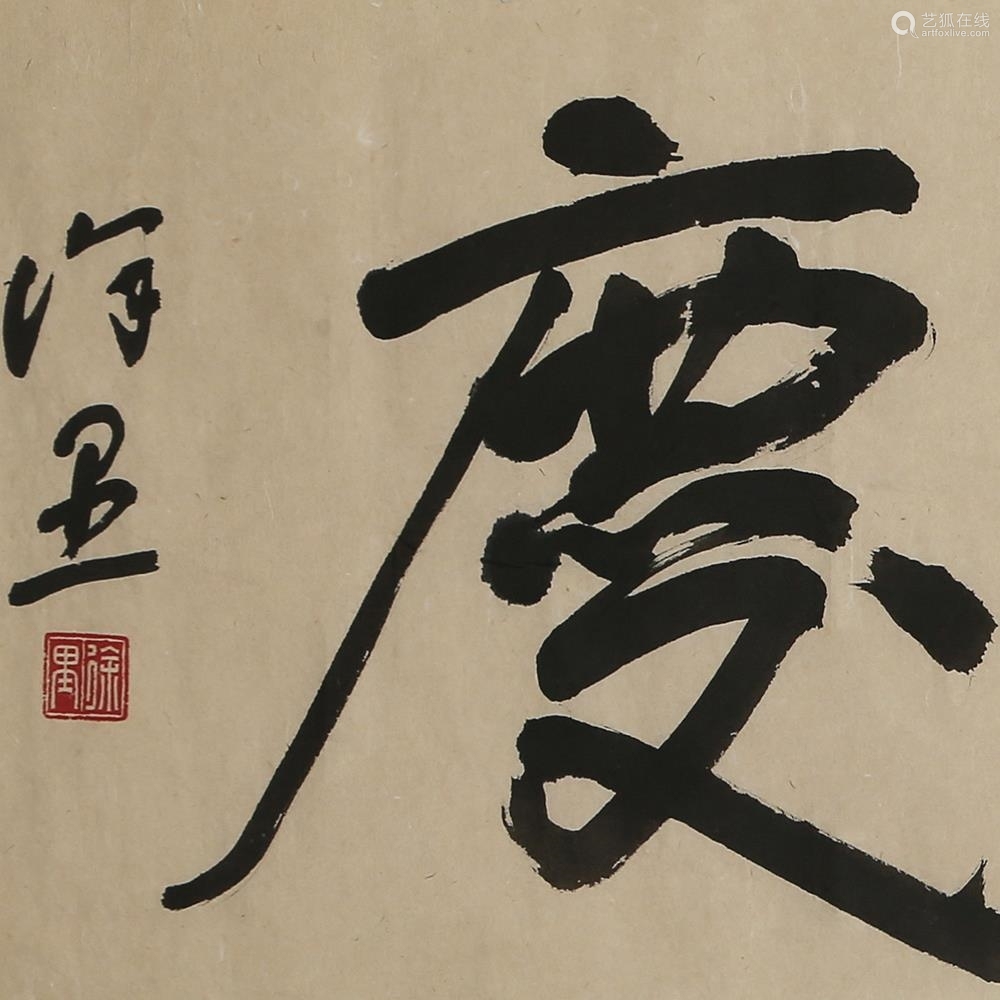 慶
徐里
徐里
艺狐在线
artfoxlive.com